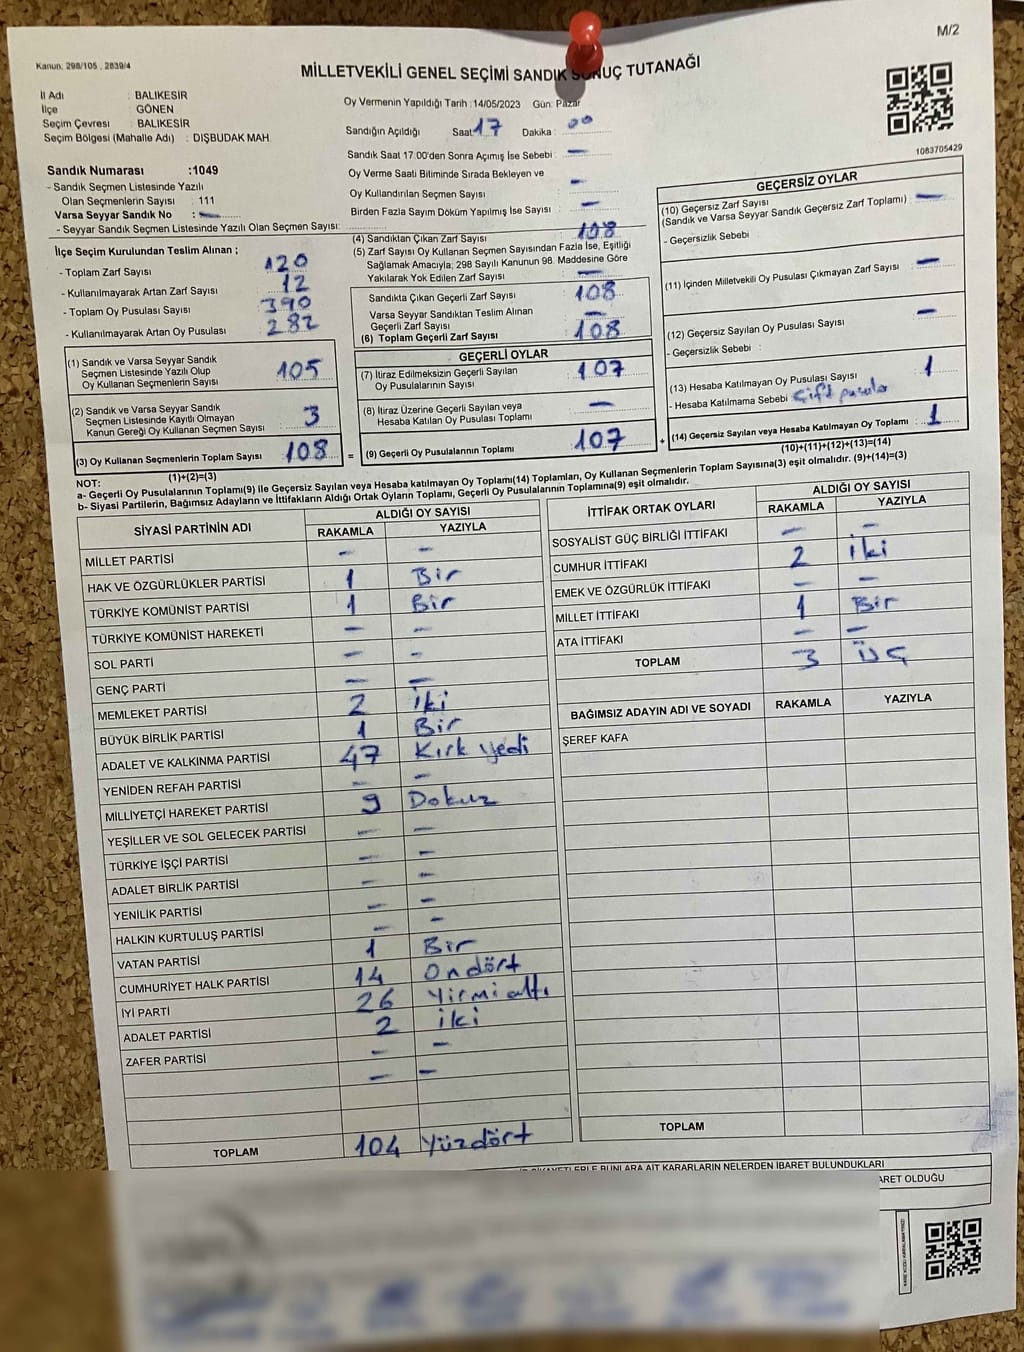 M/2
Kanun. 298/105 . 2839/4
MİLLETVEKİLİ GENEL SEÇİMİ SANDIK SONUÇ TUTANAĞI
İl Adı : BALIKESİR
İlçe : GÖNEN
Seçim Çevresi : BALIKESİR
Seçim Bölgesi (Mahalle Adı) : DIŞBUDAK MAH.
Oy Vermenin Yapıldığı Tarih :14/05/2023 Gün: Pazar
Sandığın Açıldığı Saat 17 Dakika : 00
Sandık Saat 17.00'den Sonra Açımış İse Sebebi : —
Oy Verme Saati Bitiminde Sırada Bekleyen ve
Oy Kullandırılan Seçmen Sayısı : —
Birden Fazla Sayım Döküm Yapılmış İse Sayısı : —
1083705429
Sandık Numarası :1049
- Sandık Seçmen Listesinde Yazılı
Olan Seçmenlerin Sayısı : 111
Varsa Seyyar Sandık No : —
- Seyyar Sandık Seçmen Listesinde Yazılı Olan Seçmen Sayısı:
İlçe Seçim Kurulundan Teslim Alınan ;
- Toplam Zarf Sayısı 120
- Kullanılmayarak Artan Zarf Sayısı : 12
- Toplam Oy Pusulası Sayısı : 390
- Kullanılmayarak Artan Oy Pusulası : 282
(1) Sandık ve Varsa Seyyar Sandık
Seçmen Listesinde Yazılı Olup
Oy Kullanan Seçmenlerin Sayısı 105
(2) Sandık ve Varsa Seyyar Sandık
Seçmen Listesinde Kayıtlı Olmayan
Kanun Gereği Oy Kullanan Seçmen Sayısı : 3
(3) Oy Kullanan Seçmenlerin Toplam Sayısı 108
(1)+(2)=(3)
(4) Sandıktan Çıkan Zarf Sayısı 108
(5) Zarf Sayısı Oy Kullanan Seçmen Sayısından Fazla İse, Eşitliği
Sağlamak Amacıyla; 298 Sayılı Kanunun 98. Maddesine Göre
Yakılarak Yok Edilen Zarf Sayısı : —
Sandıkta Çıkan Geçerli Zarf Sayısı : 108
Varsa Seyyar Sandıktan Teslim Alınan
Geçerli Zarf Sayısı : —
(6) Toplam Geçerli Zarf Sayısı : 108
GEÇERLİ OYLAR
(7) İtiraz Edilmeksizin Geçerli Sayılan
Oy Pusulalarının Sayısı : 107
(8) İtiraz Üzerine Geçerli Sayılan veya
Hesaba Katılan Oy Pusulası Toplamı : —
= (9) Geçerli Oy Pusulalarının Toplamı : 107
GEÇERSİZ OYLAR
(10) Geçersiz Zarf Sayısı
(Sandık ve Varsa Seyyar Sandık Geçersiz Zarf Toplamı) : —
- Geçersizlik Sebebi :
(11) İçinden Milletvekili Oy Pusulası Çıkmayan Zarf Sayısı : —
(12) Geçersiz Sayılan Oy Pusulası Sayısı : —
- Geçersizlik Sebebi :
(13) Hesaba Katılmayan Oy Pusulası Sayısı : 1
- Hesaba Katılmama Sebebi : Çift pusula
+ (14) Geçersiz Sayılan veya Hesaba Katılmayan Oy Toplamı : 1
(10)+(11)+(12)+(13)=(14)
NOT:
a- Geçerli Oy Pusulalarının Toplamı(9) ile Geçersiz Sayılan veya Hesaba katılmayan Oy Toplamı(14) Toplamları, Oy Kullanan Seçmenlerin Toplam Sayısına(3) eşit olmalıdır. (9)+(14)=(3)
b- Siyasi Partilerin, Bağımsız Adayların ve İttifakların Aldığı Ortak Oyların Toplamı, Geçerli Oy Pusulalarının Toplamına(9) eşit olmalıdır.
SİYASİ PARTİNİN ADI ALDIĞI OY SAYISI
RAKAMLA YAZIYLA
MİLLET PARTİSİ — —
HAK VE ÖZGÜRLÜKLER PARTİSİ 1 Bir
TÜRKİYE KOMÜNİST PARTİSİ 1 Bir
TÜRKİYE KOMÜNİST HAREKETİ — —
SOL PARTİ — —
GENÇ PARTİ — —
MEMLEKET PARTİSİ 2 İki
BÜYÜK BİRLİK PARTİSİ 1 Bir
ADALET VE KALKINMA PARTİSİ 47 Kırk yedi
YENİDEN REFAH PARTİSİ — —
MİLLİYETÇİ HAREKET PARTİSİ 9 Dokuz
YEŞİLLER VE SOL GELECEK PARTİSİ — —
TÜRKİYE İŞÇİ PARTİSİ — —
ADALET BİRLİK PARTİSİ — —
YENİLİK PARTİSİ — —
HALKIN KURTULUŞ PARTİSİ — —
VATAN PARTİSİ 1 Bir
CUMHURİYET HALK PARTİSİ 14 Ondört
İYİ PARTİ 26 Yirmi altı
ADALET PARTİSİ 2 İki
ZAFER PARTİSİ — —
— —
TOPLAM 104 Yüzdört
İTTİFAK ORTAK OYLARI ALDIĞI OY SAYISI
RAKAMLA YAZIYLA
SOSYALİST GÜÇ BİRLİĞİ İTTİFAKI — —
CUMHUR İTTİFAKI 2 İki
EMEK VE ÖZGÜRLÜK İTTİFAKI — —
MİLLET İTTİFAKI 1 Bir
ATA İTTİFAKI — —
TOPLAM 3 Üç
BAĞIMSIZ ADAYIN ADI VE SOYADI RAKAMLA YAZIYLA
ŞEREF KAFA
TOPLAM
BUNLARA AİT KARARLARIN NELERDEN İBARET BULUNDUKLARI
OLDUĞU